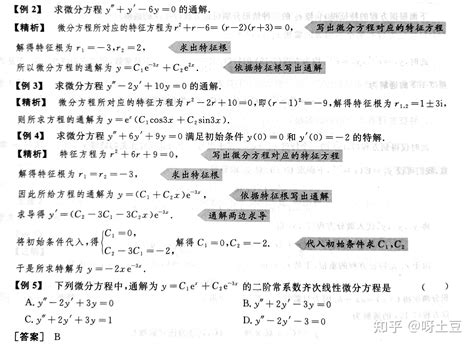 【例 2】 求微分方程 y″+y′-6y=0 的通解.
【精析】 微分方程所对应的特征方程为 r²+r-6=(r-2)(r+3)=0, 写出微分方程对应的特征方程
解得特征根为 r₁=-3,r₂=2, 求出特征根
所以微分方程的通解为 y=C₁e⁻³ˣ+C₂e²ˣ. 依据特征根写出通解
【例 3】 求微分方程 y″-2y′+10y=0 的通解.
【精析】 微分方程所对应的特征方程为 r²-2r+10=0,即(r-1)²=-9,解得特征根为 r₁,₂=1±3i,
则所求方程的通解为 y=eˣ(C₁cos3x+C₂sin3x).
【例 4】 求微分方程 y″+6y′+9y=0 满足初始条件 y(0)=0 和 y′(0)=-2 的特解.
【精析】 特征方程为 r²+6r+9=0, 写出微分方程对应的特征方程
解得特征根为 r₁=r₂=-3, 求出特征根
因此所给方程的通解为 y=(C₁+C₂x)e⁻³ˣ, 依据特征根写出通解
求导得 y′=(C₂-3C₁-3C₂x)e⁻³ˣ. 通解两边求导
将初始条件代入,得{C₁=0, C₂-3C₁=-2, 解得 C₁=0,C₂=-2. 代入初始条件求 C₁,C₂
于是所求特解为 y=-2xe⁻³ˣ.
【例 5】 下列微分方程中,通解为 y=C₁eˣ+C₂e⁻³ˣ 的二阶常系数齐次线性微分方程是 ( )
A. y″-2y′+3y=0 B. y″+2y′-3y=0
C. y″+2y′+3y=1 D. y″-2y′-3=0
【答案】 B
知乎 @呀土豆